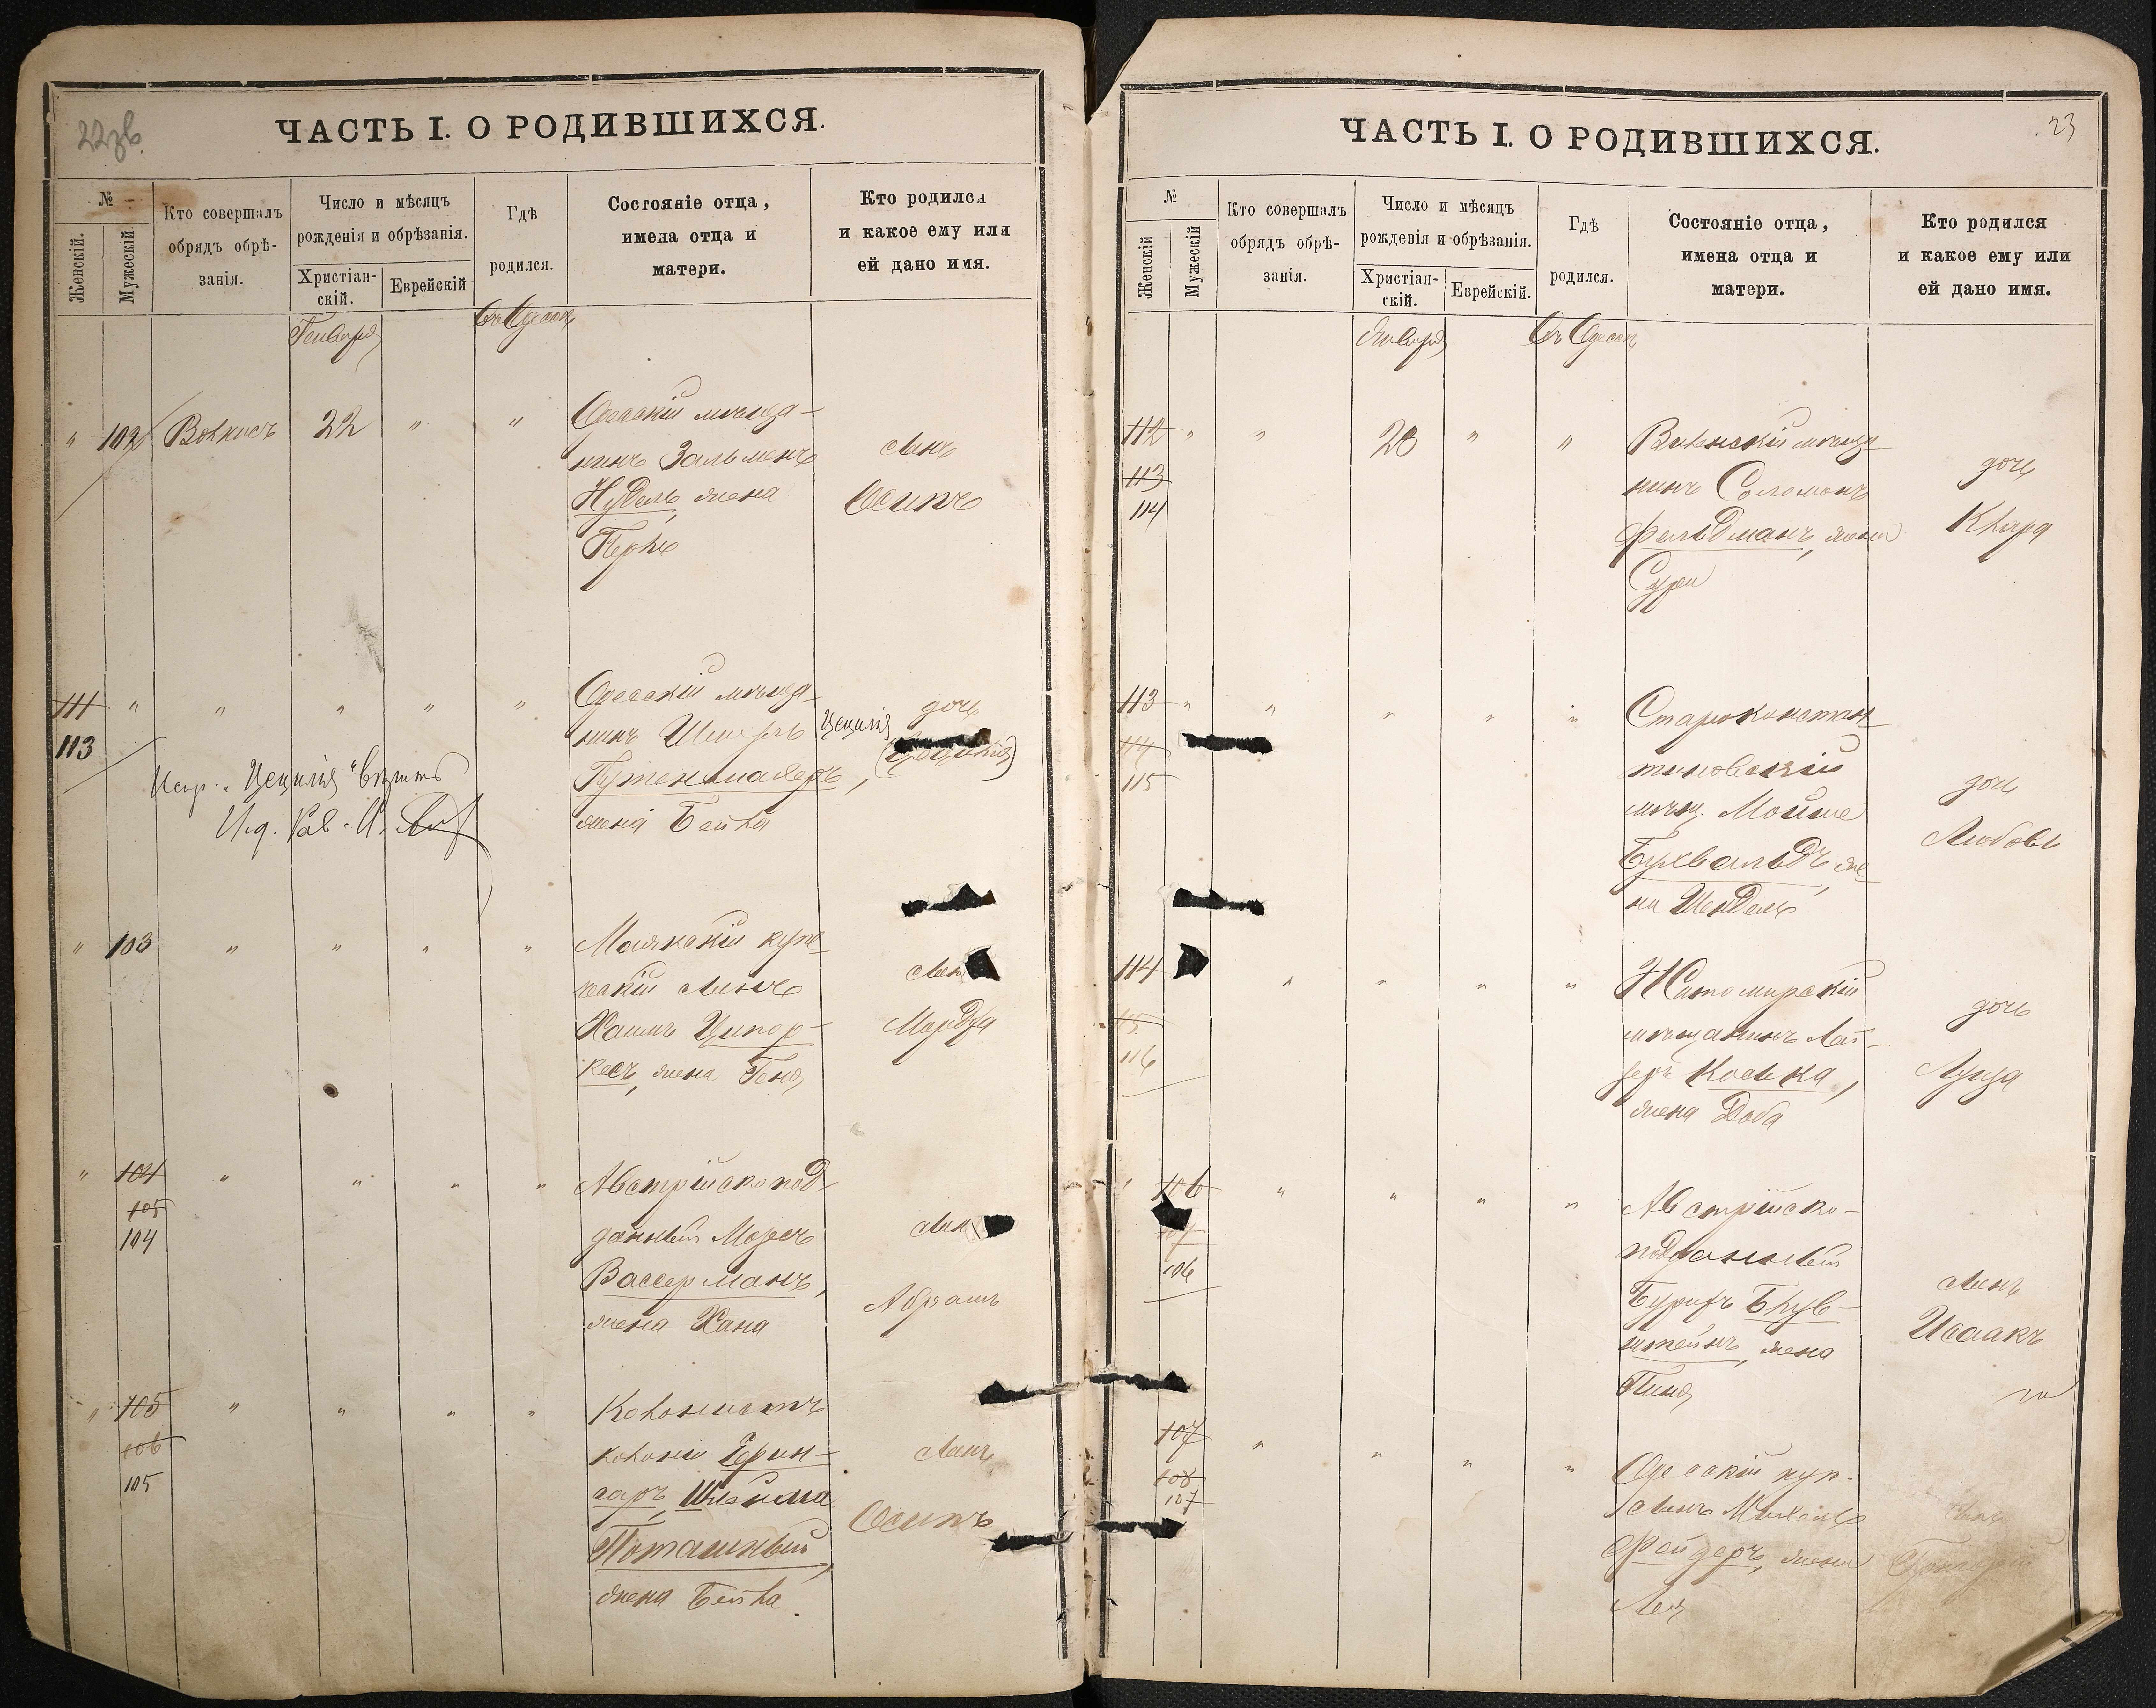 22зв
ЧАСТЬ I. О РОДИВШИХСЯ.
№
Женскій.
Мужескій
Кто совершалъ
обрядъ обрѣ-
занія.
Число и мѣсяцъ
рожденія и обрѣзанія.
Христіан-
скій.
Еврейскій
Гдѣ
родился.
Состояніе отца,
имена отца и
матери.
Кто родился
и какое ему или
ей дано имя.
Генваря
Въ Одессѣ
" 102 22 " "
Одесскій мѣща-
нинъ Зальменъ
Нудель, жена
Перля
сынъ
Осипъ
111 " " " " "
113
Одесскій мѣща-
нинъ
жена Бейла
дочь
Цецилія
Испр. "Цецилія" вѣрить
" 103 " " " "
Маякскій купе-
ческій сынъ
Хаимъ Ципор-
кесъ, жена Геня
сын
Мордха
" 104 " " " "
105
104
Австрійскопод-
данный Моресъ
Вассерманъ,
жена Хана
сын
Абрамъ
" 105 " " " "
106
105
Колонистъ
колоніи Ефин-
гаръ, Шлейма
Поташный,
жена Бейла
сынъ
Осипъ
23
ЧАСТЬ I. О РОДИВШИХСЯ.
№
Женскій
Мужескій
Кто совершалъ
обрядъ обрѣ-
занія.
Число и мѣсяцъ
рожденія и обрѣзанія.
Христіан-
скій.
Еврейскій.
Гдѣ
родился.
Состояніе отца,
имена отца и
матери.
Кто родился
и какое ему или
ей дано имя.
Января
Въ Одессѣ
112 " " 28 " "
113
114
Виленскій мѣща-
нинъ Соломонъ
Фельдманъ, жена
Сура
дочь
Клара
113 " " " " "
114
115
Староконстан-
тиновскій
мѣщ. Мойше
Бухвальдъ, же-
на Шендель
дочь
Любовь
114 " " " "
115
116
Житомирскій
мѣщанинъ Лей-
зеръ Косека,
жена Доба
дочь
Луиза
" 106 " " " "
107
106
Австрійско-
подданный
Бурихъ Блув-
штейнъ, жена
Пиня
сынъ
Исаакъ
107 " " " "
108
107
Одесскій куп.
сынъ Михель
Файдеръ, жена
Лея
сынъ